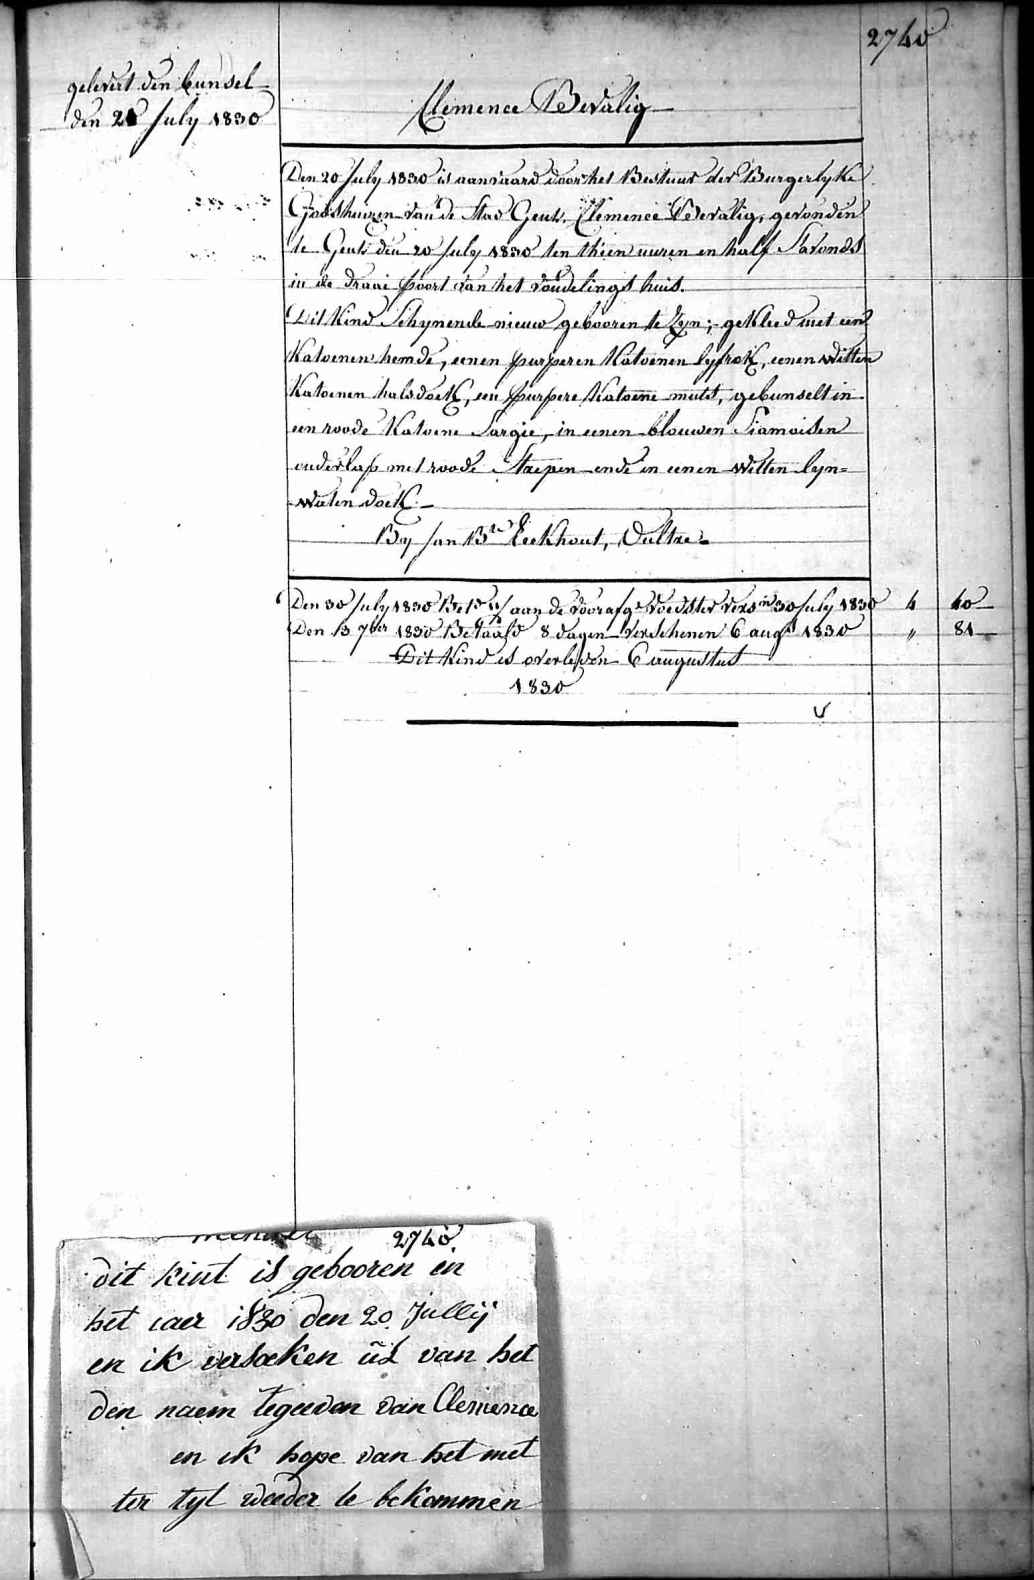 2740
gelevert den bunsel
den 21 July 1830
Clemence Bevalig
Den 20 July 1830 is aanvaard door het Bestuur der Burgerlyke
Godshuizen van de Stad Gent, Clemence Bevalig, gevonden
te Gent den 20 July 1830 ten thien uuren en half Savonds
in de draai poort van het vondelings huis.
Dit Kind Schynende nieuw gebooren te Zyn; gekleed met een
Katoenen hemde, eenen purperen Katoenen lyfrok, eenen witten
Katoenen halsdoek, een purpere Katoene muts, gebunselt in
een roode Katoene Sargie, in eenen blouwen Siamoisen
ouderlap met roode Streepen ende in eenen witten lyn=
waten doek.
By Jan Bte Eeckhout, Oultre
Den 30 July 1830 Betd aan de voorafge voedster versn 30 July 1830 4 40
Den 13 7ber 1830 Betaald 8 dagen verschenen 6 augt 1830 " 81
Dit Kind is overleden 6 augustus
1830
2740
dit kint is gebooren in
het iaer 1830 den 20 Jullij
en ik versoeken ul van het
den naem tegeeven van Clemence
en ik hope van het met
ter tyt weeder te bekommen